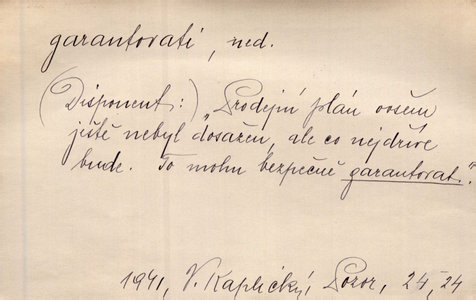 garantovati, ned.
(Disponent:) „Prodejní plán ovšem
ještě nebyl dosažen, ale co nejdříve
bude. To mohu bezpečně garantovat."
1941, V. Kaplický, Pozor, 24, 24